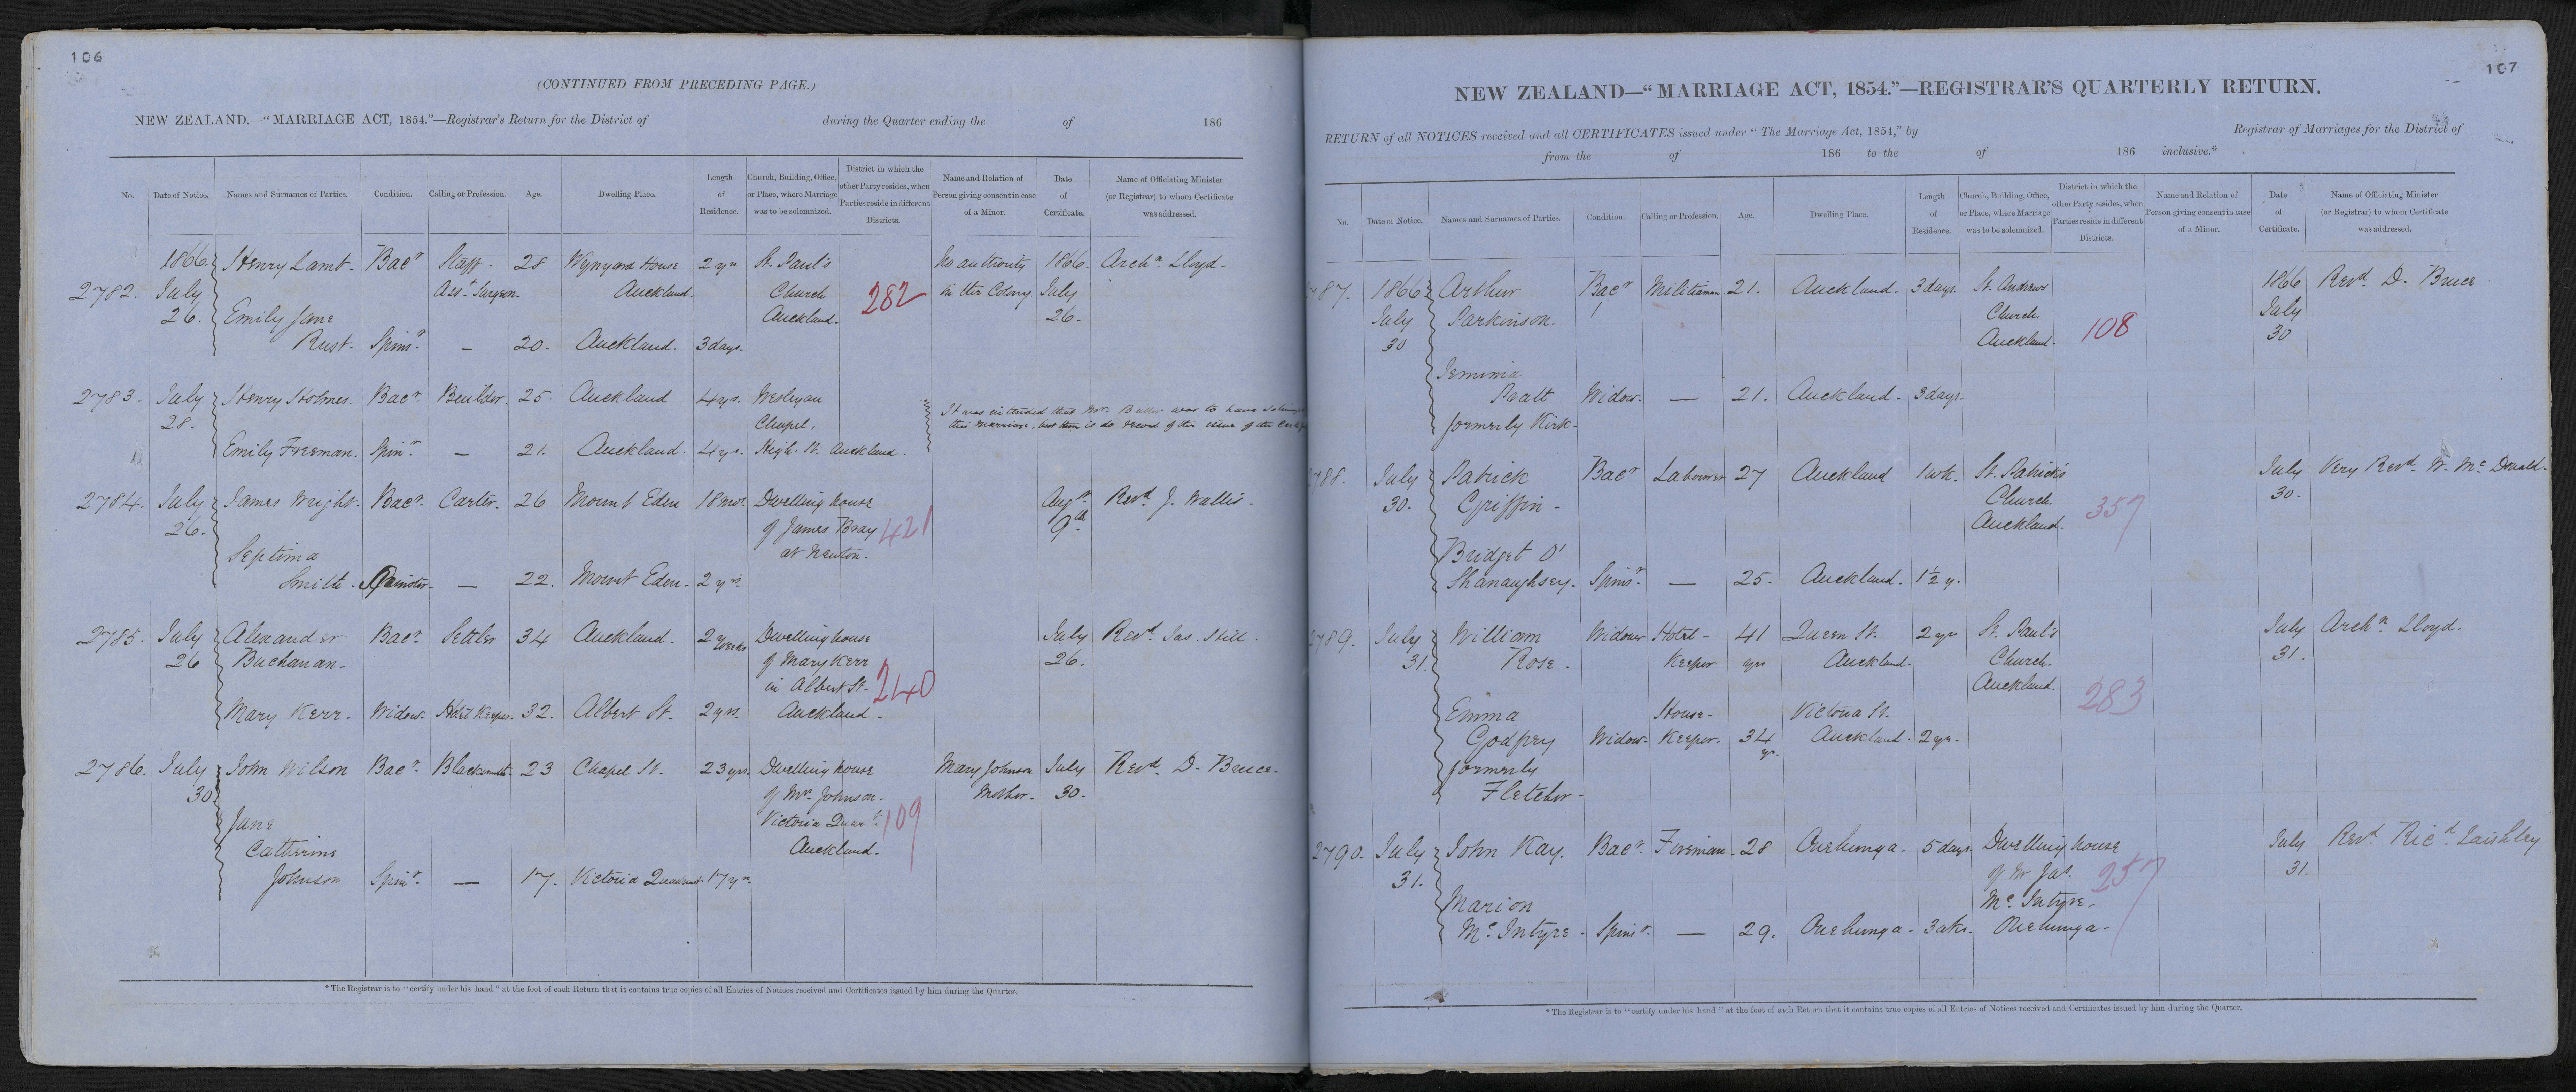 106
(CONTINUED FROM PRECEDING PAGE.)
NEW ZEALAND.—"MARRIAGE ACT, 1854."—Registrar's Return for the District of during the Quarter ending the of 186
No. Date of Notice. Names and Surnames of Parties. Condition. Calling or Profession. Age. Dwelling Place. Length of Residence. Church, Building, Office, or Place, where Marriage was to be solemnized. District in which the other Party resides, when Parties reside in different Districts. Name and Relation of Person giving consent in case of a Minor. Date of Certificate. Name of Officiating Minister (or Registrar) to whom Certificate was addressed.
1866. Henry Lamb. Bacr Staff. 28 Wynyard House 2 yrs. St. Paul's No authority 1866. Archn. Lloyd.
2782. July Asst. Surgeon. Auckland. Church 282 in the Colony. July
26. Emily Jane Auckland. 26.
Rust. Spinr. — 20. Auckland. 3 days.
2783. July Henry Holmes. Bacr. Builder. 25. Auckland 4 yrs. Wesleyan It was intended that Mr. Buller was to have
28. Chapel, this marriage, but there is no record of the issue of the
Emily Freeman. Spinr. — 21. Auckland. 4 yrs. High St. Auckland.
2784. July James Wright. Bacr. Carter. 26 Mount Eden 18 mos. Dwelling house Augst. Revd. J. Wallis.
26. of James Bray 421 9th
Septima at Newton.
Smith. Spinster. — 22. Mount Eden. 2 yrs.
2785. July Alexander Bacr. Settler 34 Auckland. 2 weeks Dwelling house July Revd. Jas. Hill.
26 Buchanan. of Mary Kerr 26.
in Albert St. 240
Mary Kerr. Widow. Hotel Keeper. 32. Albert St. 2 yrs. Auckland.
2786. July John Wilson Bacr. Blacksmith. 23 Chapel St. 23 yrs. Dwelling house Mary Johnson July Revd. D. Bruce.
30 of Mrs. Johnson. Mother. 30.
Jane Victoria Quadt. 109
Catherine Auckland.
Johnson Spinr. — 17. Victoria Quadrant 17 yrs.
*The Registrar is to "certify under his hand" at the foot of each Return that it contains true copies of all Entries of Notices received and Certificates issued by him during the Quarter.
107
NEW ZEALAND—"MARRIAGE ACT, 1854."—REGISTRAR'S QUARTERLY RETURN.
RETURN of all NOTICES received and all CERTIFICATES issued under "The Marriage Act, 1854," by Registrar of Marriages for the District of
from the of 186 to the of 186 inclusive.*
No. Date of Notice. Names and Surnames of Parties. Condition. Calling or Profession. Age. Dwelling Place. Length of Residence. Church, Building, Office, or Place, where Marriage was to be solemnized. District in which the other Party resides, when Parties reside in different Districts. Name and Relation of Person giving consent in case of a Minor. Date of Certificate. Name of Officiating Minister (or Registrar) to whom Certificate was addressed.
87. 1866 Arthur Bacr Militiaman 21. Auckland. 3 days. St. Andrews 1866 Revd. D. Bruce
July Parkinson. Church. July
30 Auckland. 108 30
Jemima
Pratt Widow. — 21. Auckland. 3 days.
formerly Kirk.
788. July Patrick Bacr Labourer 27 Auckland 1 wk. St. Patrick's July Very Revd. W. McDonald.
30. Griffin. Church. 30.
Auckland. 357
Bridget O'
Shanaughsey. Spinr. — 25. Auckland. 1½ y.
2789. July William Widower Hotel- 41 Queen St. 2 yrs St. Paul's July Archn. Lloyd.
31. Rose. Keeper yrs Auckland. Church. 31.
Auckland. 283
Emma House- Victoria St.
Godfrey Widow. Keeper. 34 yrs. Auckland. 2 yrs.
formerly
Fletcher.
2790. July John Kay. Bacr. Foreman. 28 Onehunga. 5 days. Dwelling house July Revd. Ricd. Laishley
31. of Mr Jas. 257 31.
Marion McIntyre.
McIntyre. Spinsr. — 29. Onehunga. 3 wks. Onehunga.
*The Registrar is to "certify under his hand" at the foot of each Return that it contains true copies of all Entries of Notices received and Certificates issued by him during the Quarter.